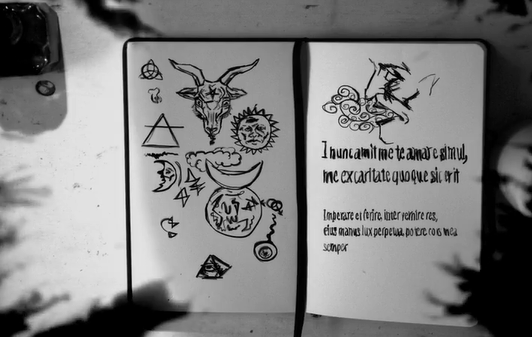 I nunc amit me te amare simul,
me ex caritate quoque sic erit
Imperare et forire, inter venire res,
eius manus lux perpetua, potere
semper